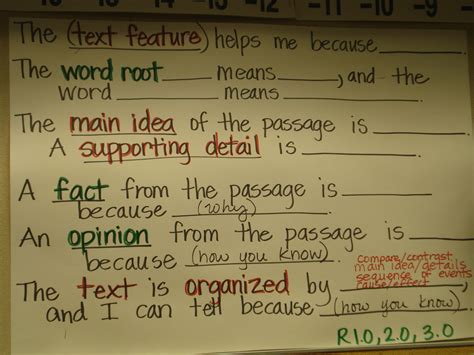 -11 -10 -9
The (text feature) helps me because ____.
The word root ____ means ____, and the
word ____ means ____.
The main idea of the passage is ____.
A supporting detail is ____.
A fact from the passage is ____
because (why).
An opinion from the passage is ____
because (how you know).
compare/contrast
main idea/details
sequence of events
cause/effect
The text is organized by ____,
and I can tell because (how you know).
R1.0, 2.0, 3.0